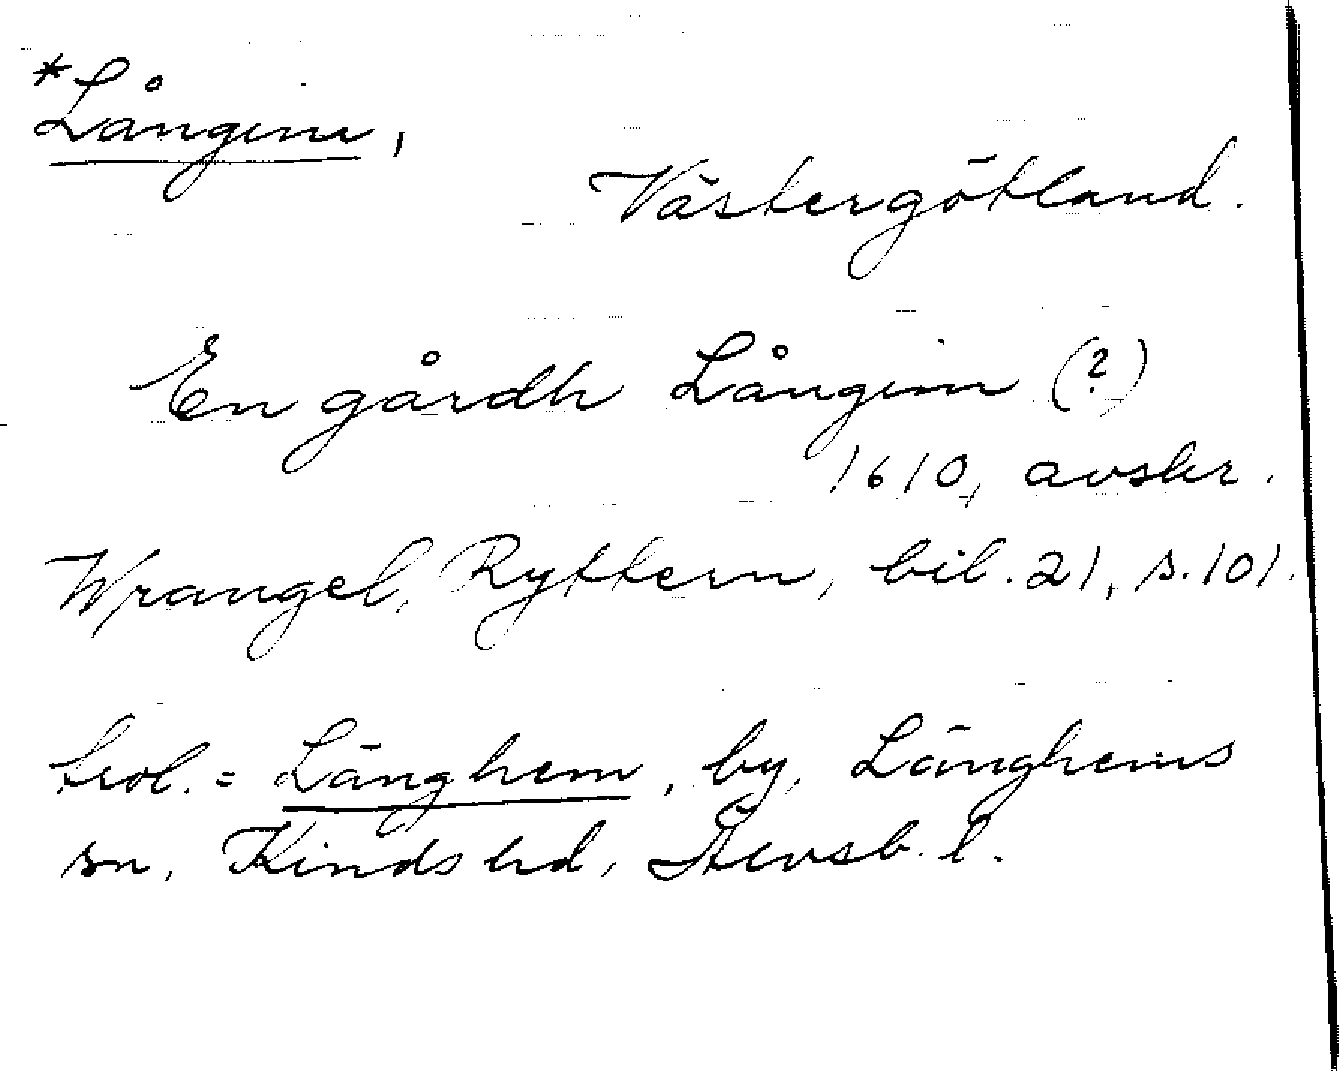 *Långim,
Västergötland.
En gårdh Långim (?)
1610, avskr.
Wrangel, Ryttern, bil. 21, s. 101.
trol. = Länghem, by, Länghems
sn, Kinds hd, Älvsb. l.